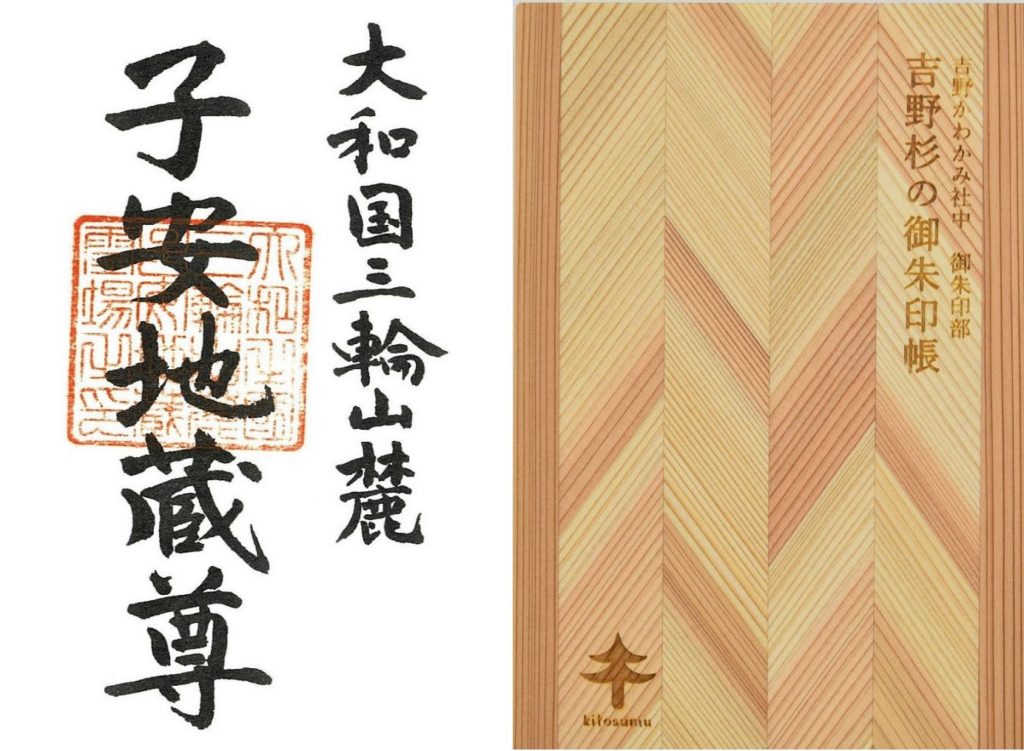 大和国三輪山麓
子安地蔵尊
吉野かわかみ社中 御朱印部
吉野杉の御朱印帳
kitosumu